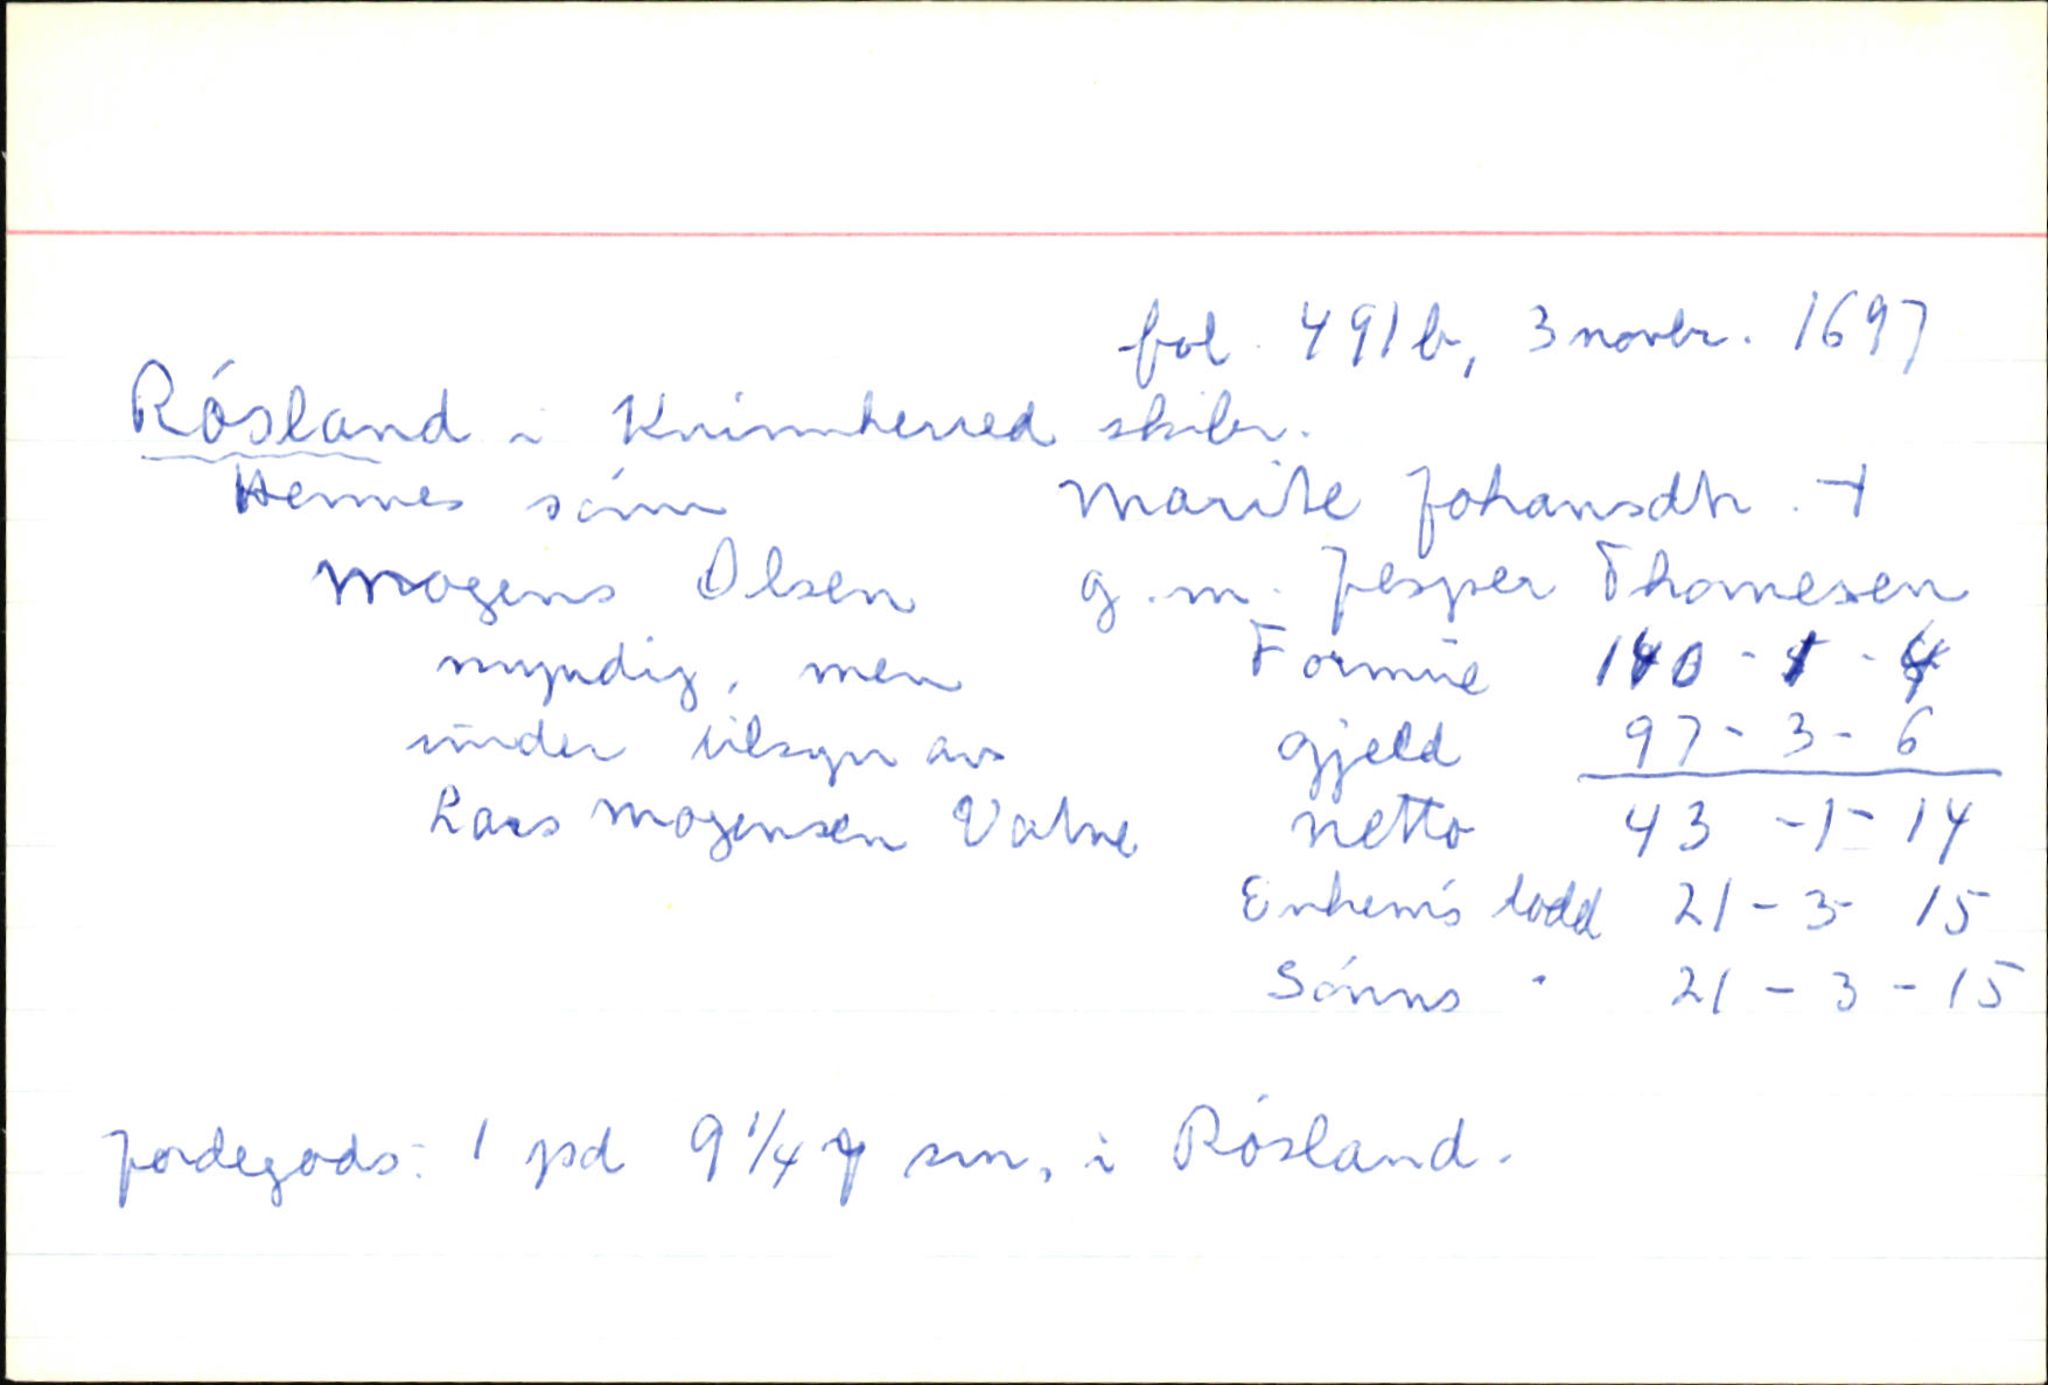 fol. 491b, 3 novbr. 1697
Rósland i Kvinnherred skibr.
Hennes sónn Marite Johansdtr. †
Mogens Olsen g.m. Jesper Thomesen
myndig, men Formue 140 - 5 - 4
under tilsyn av gjeld 97 - 3 - 6
Lars Mogensen Vatne netto 43 - 1 - 14
Enkem's lodd 21 - 3 - 15
Sónns " 21 - 3 - 15
Jordegods: 1 pd 9 1/4 sm, i Rósland.